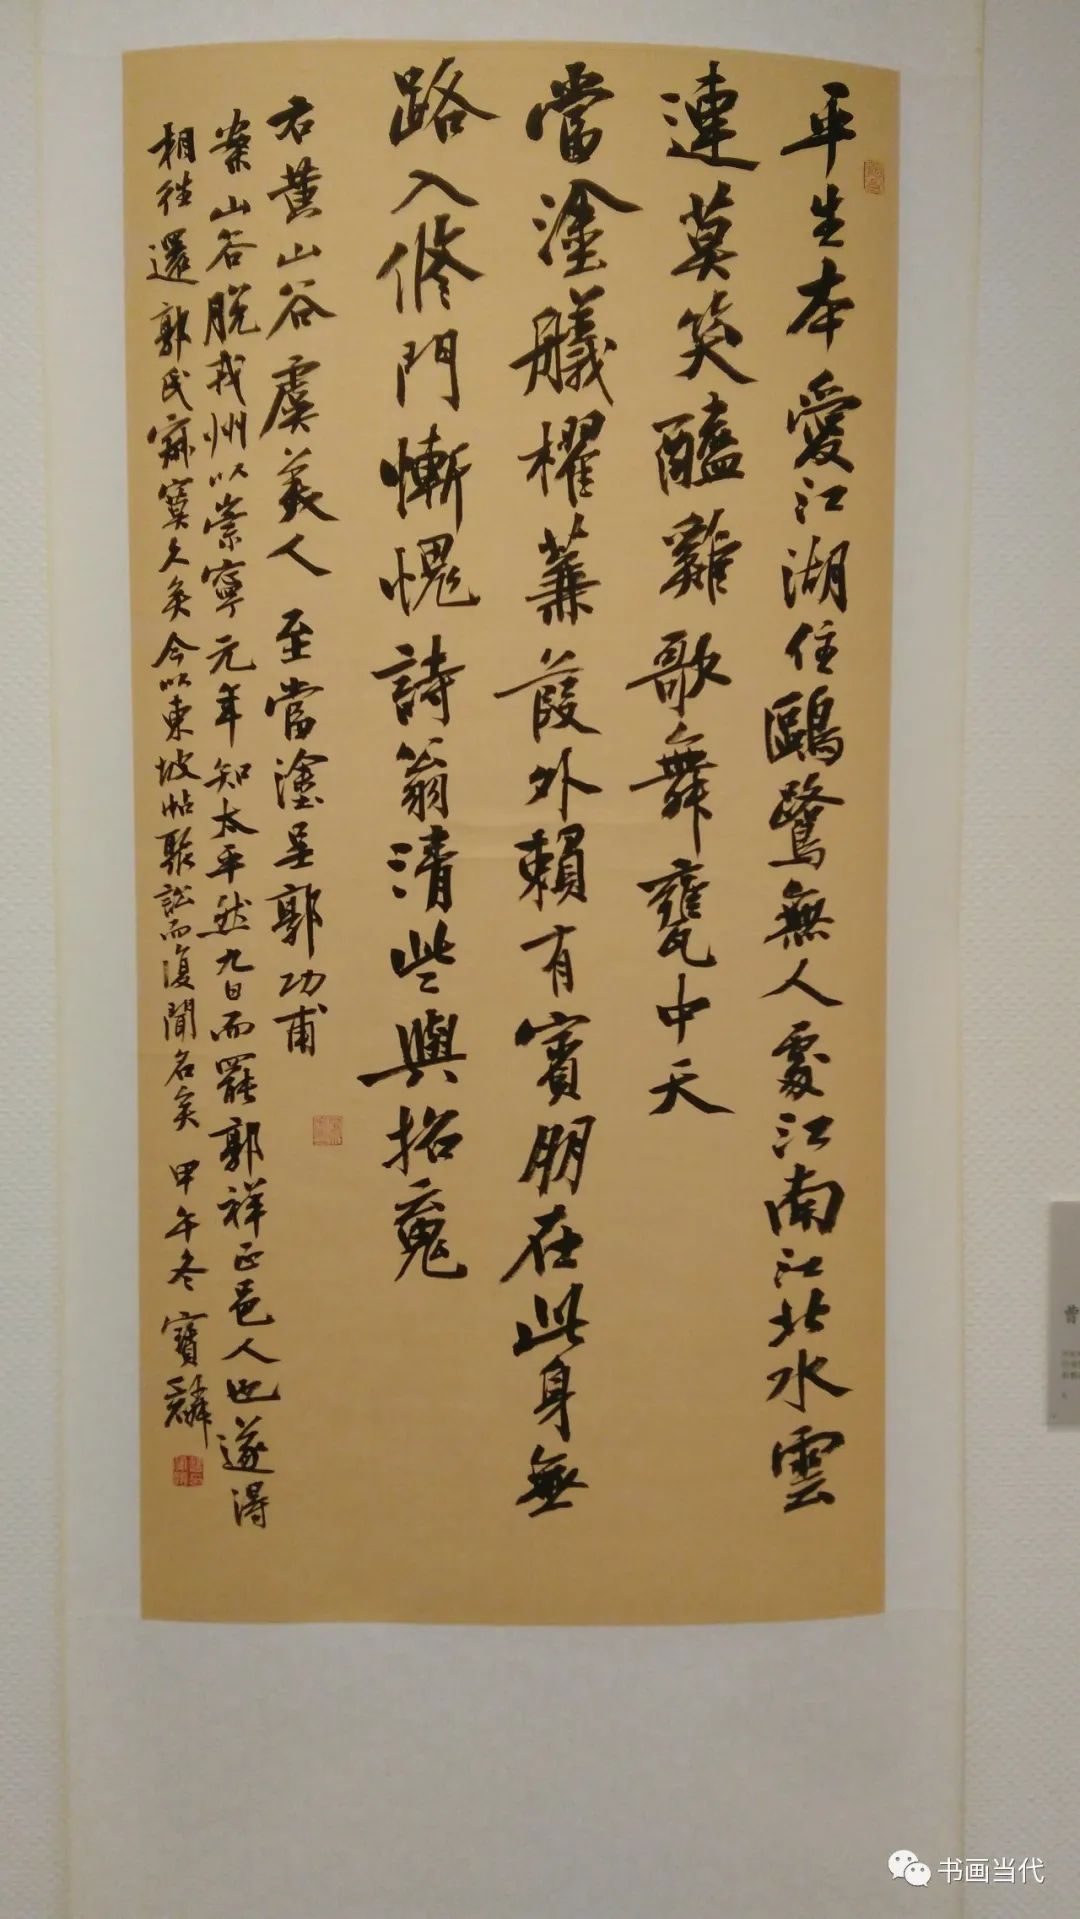 平生本愛江湖住鷗鷺無人處江南江北水雲
連莫笑醯雞歌舞甕中天
當塗艤櫂蒹葭外賴有賓朋在此身無
路入脩門慚愧詩翁清些與招䰟
右黄山谷虞美人 至當塗呈郭功甫
案山谷脱戎州以崇寧元年知太平然九日而罷郭祥正邑人也遂得
相往還郭氏寂寞久矣今以東坡帖聚訟而復聞名矣 甲午冬 寶麟
书画当代